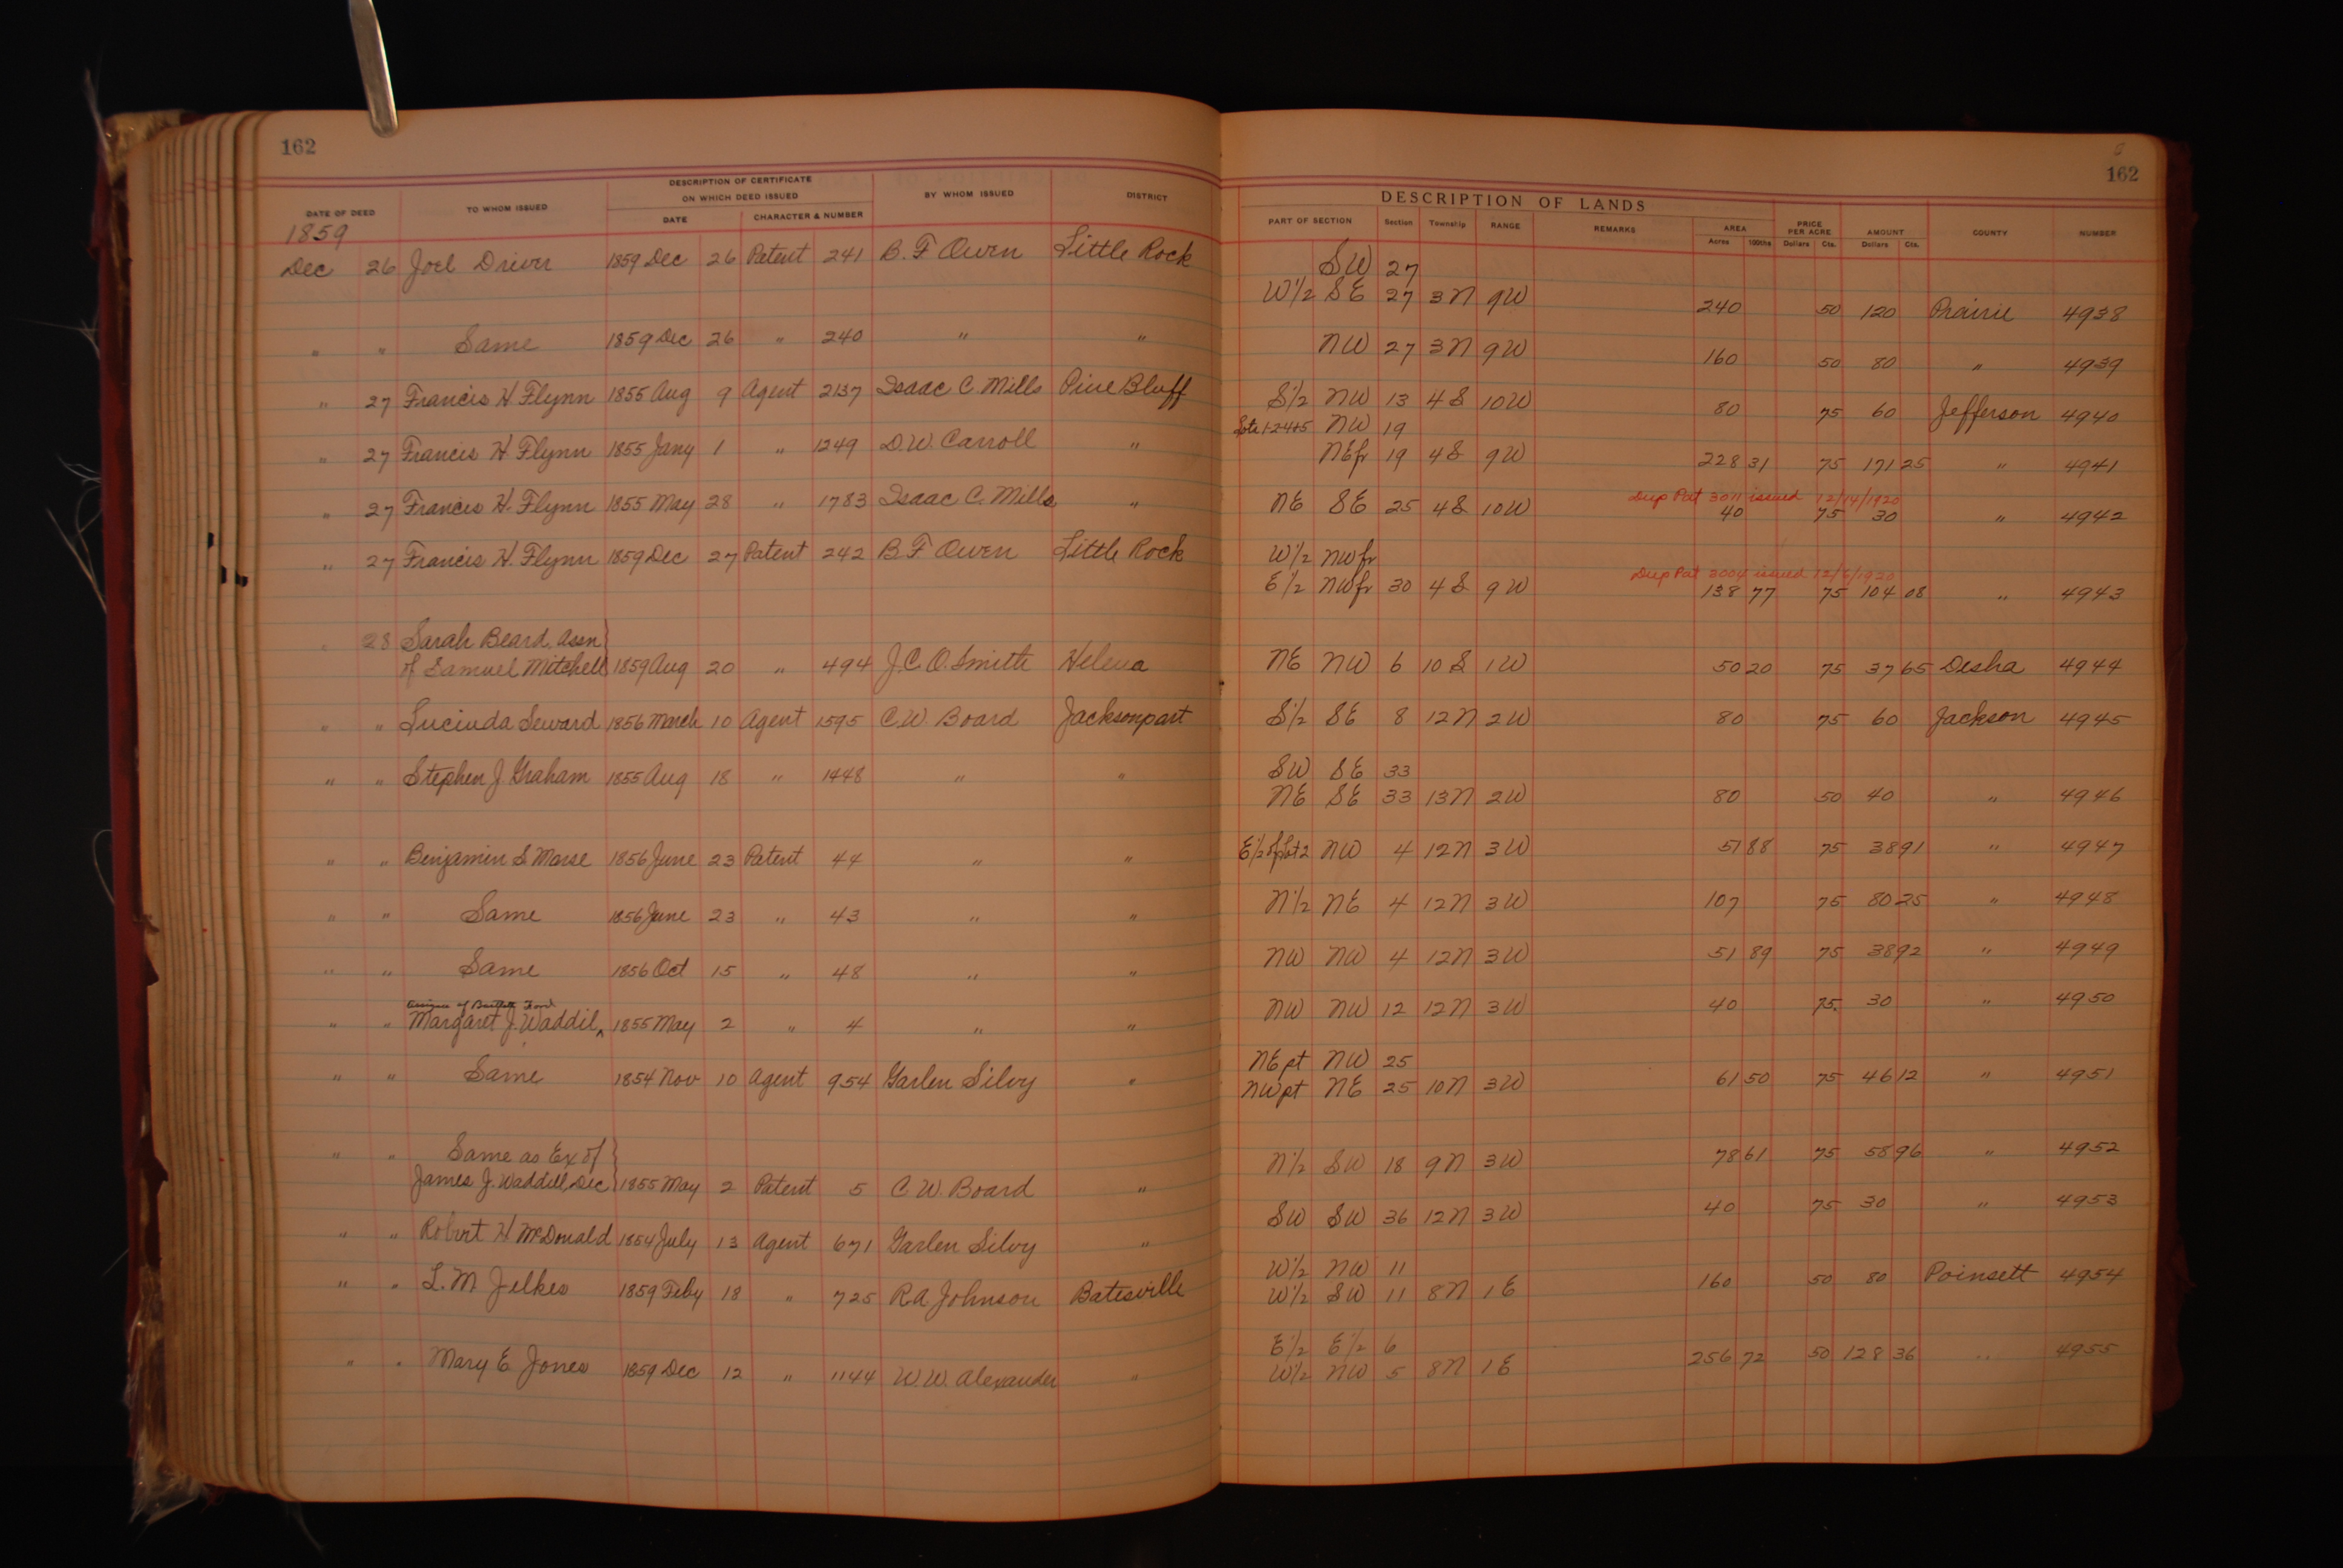 162
DATE OF DEED
TO WHOM ISSUED
DESCRIPTION OF CERTIFICATE
ON WHICH DEED ISSUED
DATE
CHARACTER & NUMBER
BY WHOM ISSUED
DISTRICT
1859
Dec 26 Joel Driver 1859 Dec 26 Patent 241 B. F Owen Little Rock
" " Same 1859 Dec 26 " 240 " "
" 27 Francis H Flynn 1855 Aug 9 Agent 2137 Isaac C. Mills Pine Bluff
" 27 Francis H Flynn 1855 Jany 1 " 1249 D.W. Carroll "
" 27 Francis H. Flynn 1855 May 28 " 1783 Isaac C. Mills "
" 27 Francis H. Flynn 1859 Dec 27 Patent 242 B. F Owen Little Rock
" 28 Sarah Beard, Assn
of Samuel Mitchell 1859 Aug 20 " 494 J. C. O. Smith Helena
" " Lucinda Seward 1856 March 10 Agent 1595 C. W. Board Jacksonport
" " Stephen J Graham 1855 Aug 18 " 1448 " "
" " Benjamin S Morse 1856 June 23 Patent 44 " "
" " Same 1856 June 23 " 43 " "
" " Same 1856 Oct 15 " 48 " "
assignee of Bartlett Ford
" " Margaret J. Waddil, 1855 May 2 " 4 " "
" " Same 1854 Nov 10 Agent 954 Garlen Silvy "
" " Same as Ex of
James J. Waddill, Dec 1855 May 2 Patent 5 C. W. Board "
" " Robert H McDonald 1854 July 13 Agent 671 Garlen Silvy "
" " L. M Jelkes 1859 Feby 18 " 725 R A Johnson Batesville
" " Mary E Jones 1859 Dec 12 " 1144 W. W. Alexander "
162
DESCRIPTION OF LANDS
PART OF SECTION
Section
Township
RANGE
REMARKS
AREA
Acres 100ths
PRICE
PER ACRE
Dollars Cts.
AMOUNT
Dollars Cts.
COUNTY
NUMBER
SW 27
W 1/2 SE 27 3N 9W 240 50 120 Prairie 4938
NW 27 3N 9W 160 50 80 " 4939
S 1/2 NW 13 4S 10W 80 75 60 Jefferson 4940
Lots 1-2-4+5 NW 19
NEfr 19 4S 9W 228 31 75 171 25 " 4941
Dup Pat 3011 issued 12/14/1920
NE SE 25 4S 10W 40 75 30 " 4942
W 1/2 NWfr
Dup Pat 3004 issued 12/6/1920
E 1/2 NWfr 30 4S 9W 138 77 75 104 08 " 4943
NE NW 6 10S 1W 50 20 75 37 65 Desha 4944
S 1/2 SE 8 12N 2W 80 75 60 Jackson 4945
SW SE 33
NE SE 33 13N 2W 80 50 40 " 4946
E 1/2 of Lot 2 NW 4 12N 3W 51 88 75 38 91 " 4947
N 1/2 NE 4 12N 3W 107 75 80 25 " 4948
NW NW 4 12N 3W 51 89 75 38 92 " 4949
NW NW 12 12N 3W 40 75. 30 " 4950
NE pt NW 25
NW pt NE 25 10N 3W 61 50 75 46 12 " 4951
N 1/2 SW 18 9N 3W 78 61 75 58 96 " 4952
SW SW 36 12N 3W 40 75 30 " 4953
W 1/2 NW 11
W 1/2 SW 11 8N 1E 160 50 80 Poinsett 4954
E 1/2 E 1/2 6
W 1/2 NW 5 8N 1E 256 72 50 128 36 " 4955